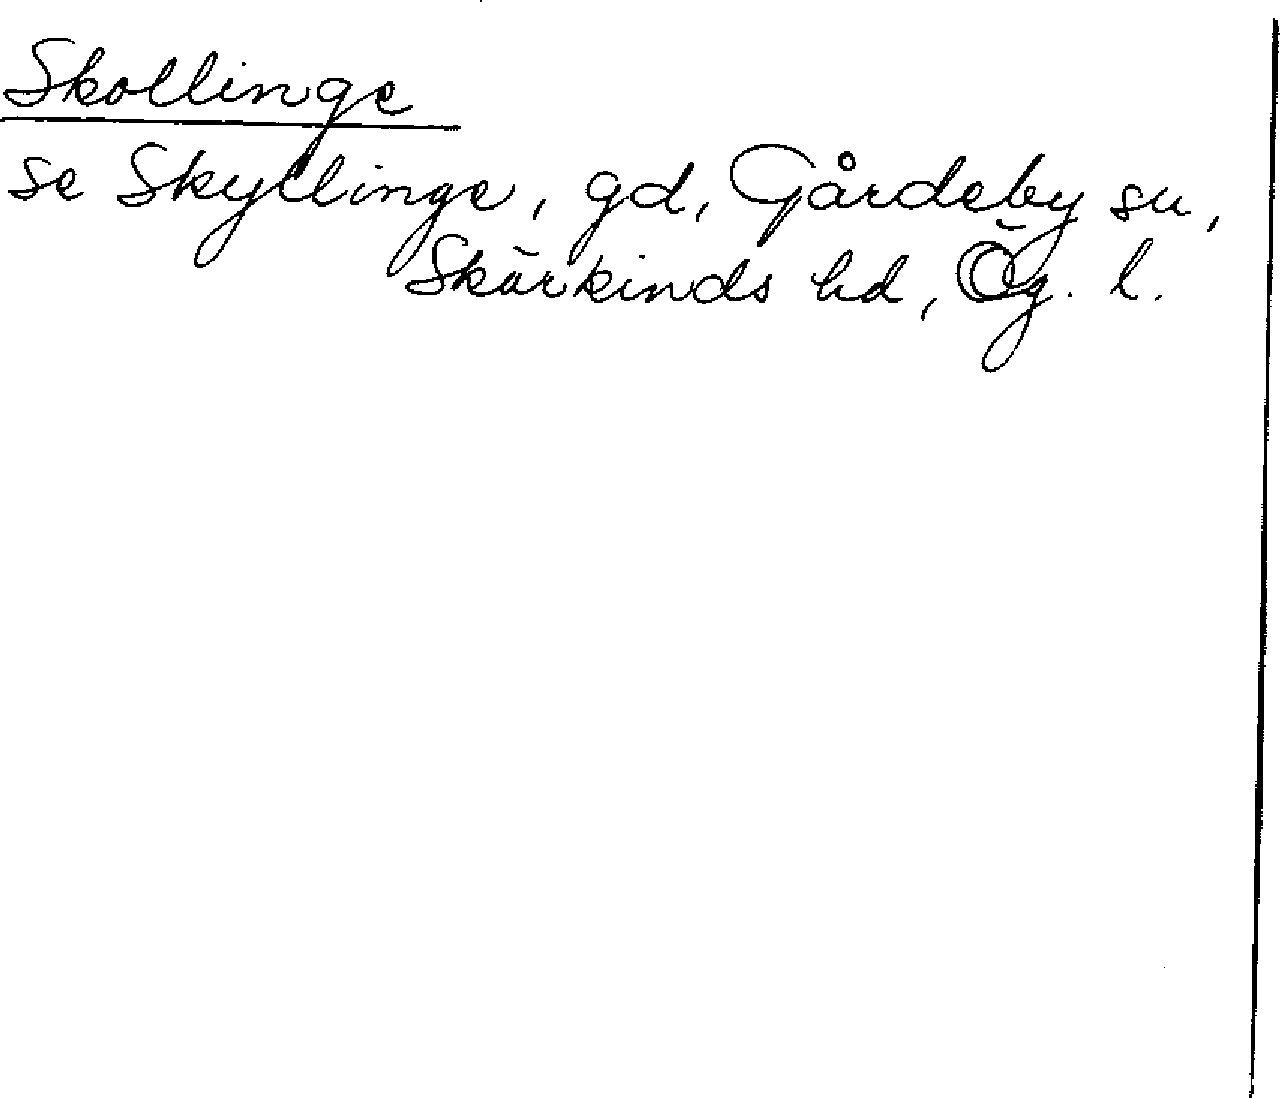 Skollinge
se Skyllinge, gd, Gårdeby sn,
Skärkinds hd, Ög. l.